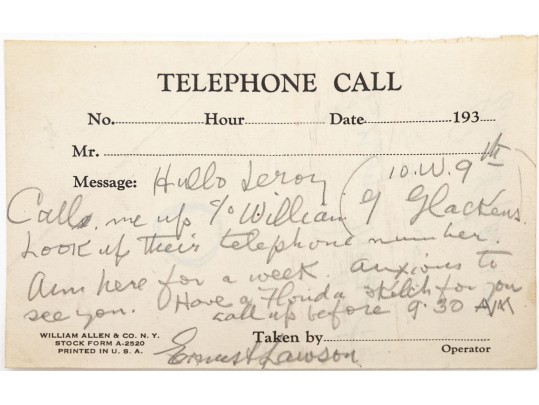 TELEPHONE CALL
No. Hour Date 193
Mr.
Message: Hullo Leroy
10. W. 9th
Call me up c/o William J Glackens.
Look up their telephone number.
Am here for a week. anxious to
see you. Have a Florida sketch for you
call up before 9.30 AM
WILLIAM ALLEN & CO. N. Y.
STOCK FORM A-2520
PRINTED IN U. S. A.
Taken by
Operator
Ernest Lawson